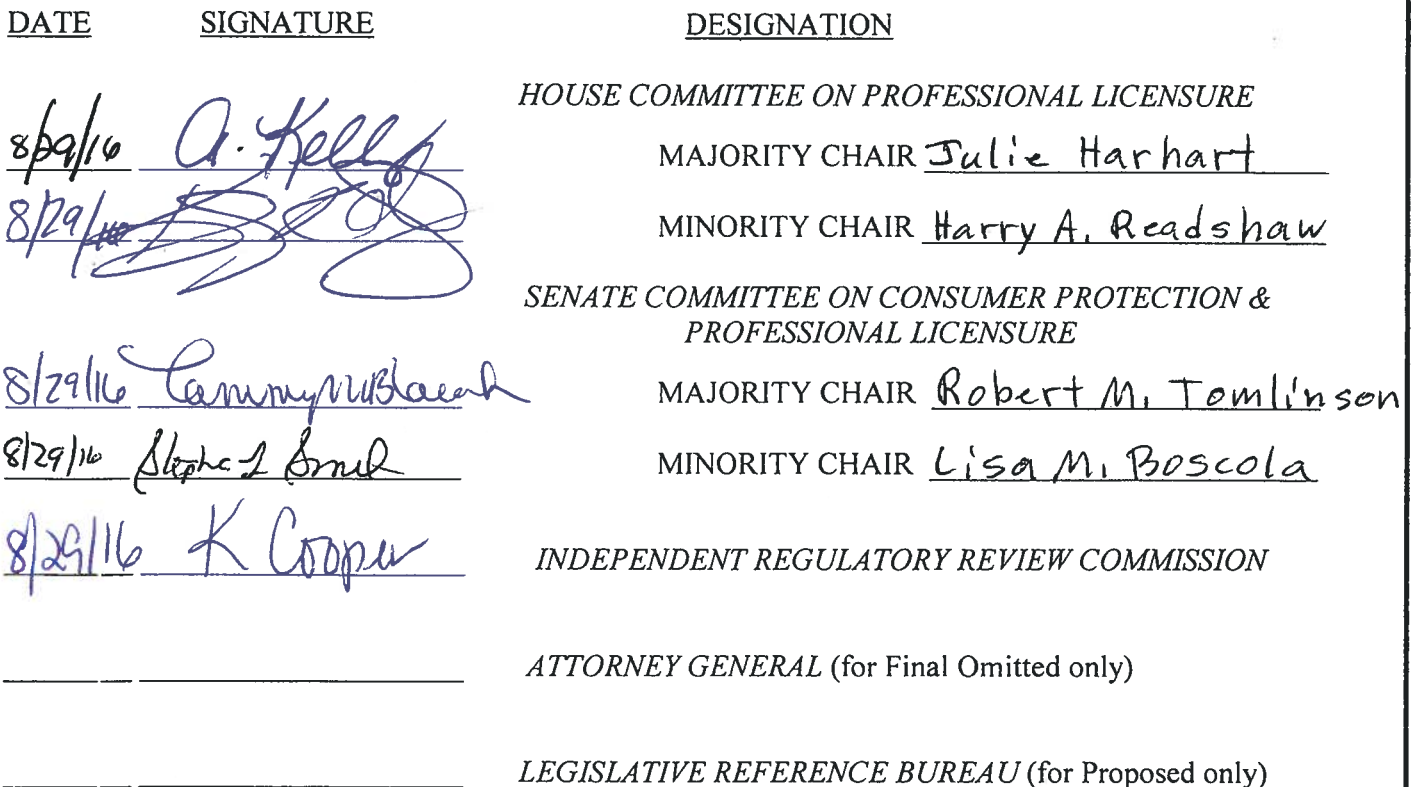 DATE SIGNATURE DESIGNATION
HOUSE COMMITTEE ON PROFESSIONAL LICENSURE
8/29/16 A. Kelly MAJORITY CHAIR Julie Harhart
8/29/16 MINORITY CHAIR Harry A. Readshaw
SENATE COMMITTEE ON CONSUMER PROTECTION &
PROFESSIONAL LICENSURE
8/29/16 MAJORITY CHAIR Robert M. Tomlinson
8/29/16 MINORITY CHAIR Lisa M. Boscola
8/29/16 K Cooper INDEPENDENT REGULATORY REVIEW COMMISSION
ATTORNEY GENERAL (for Final Omitted only)
LEGISLATIVE REFERENCE BUREAU (for Proposed only)